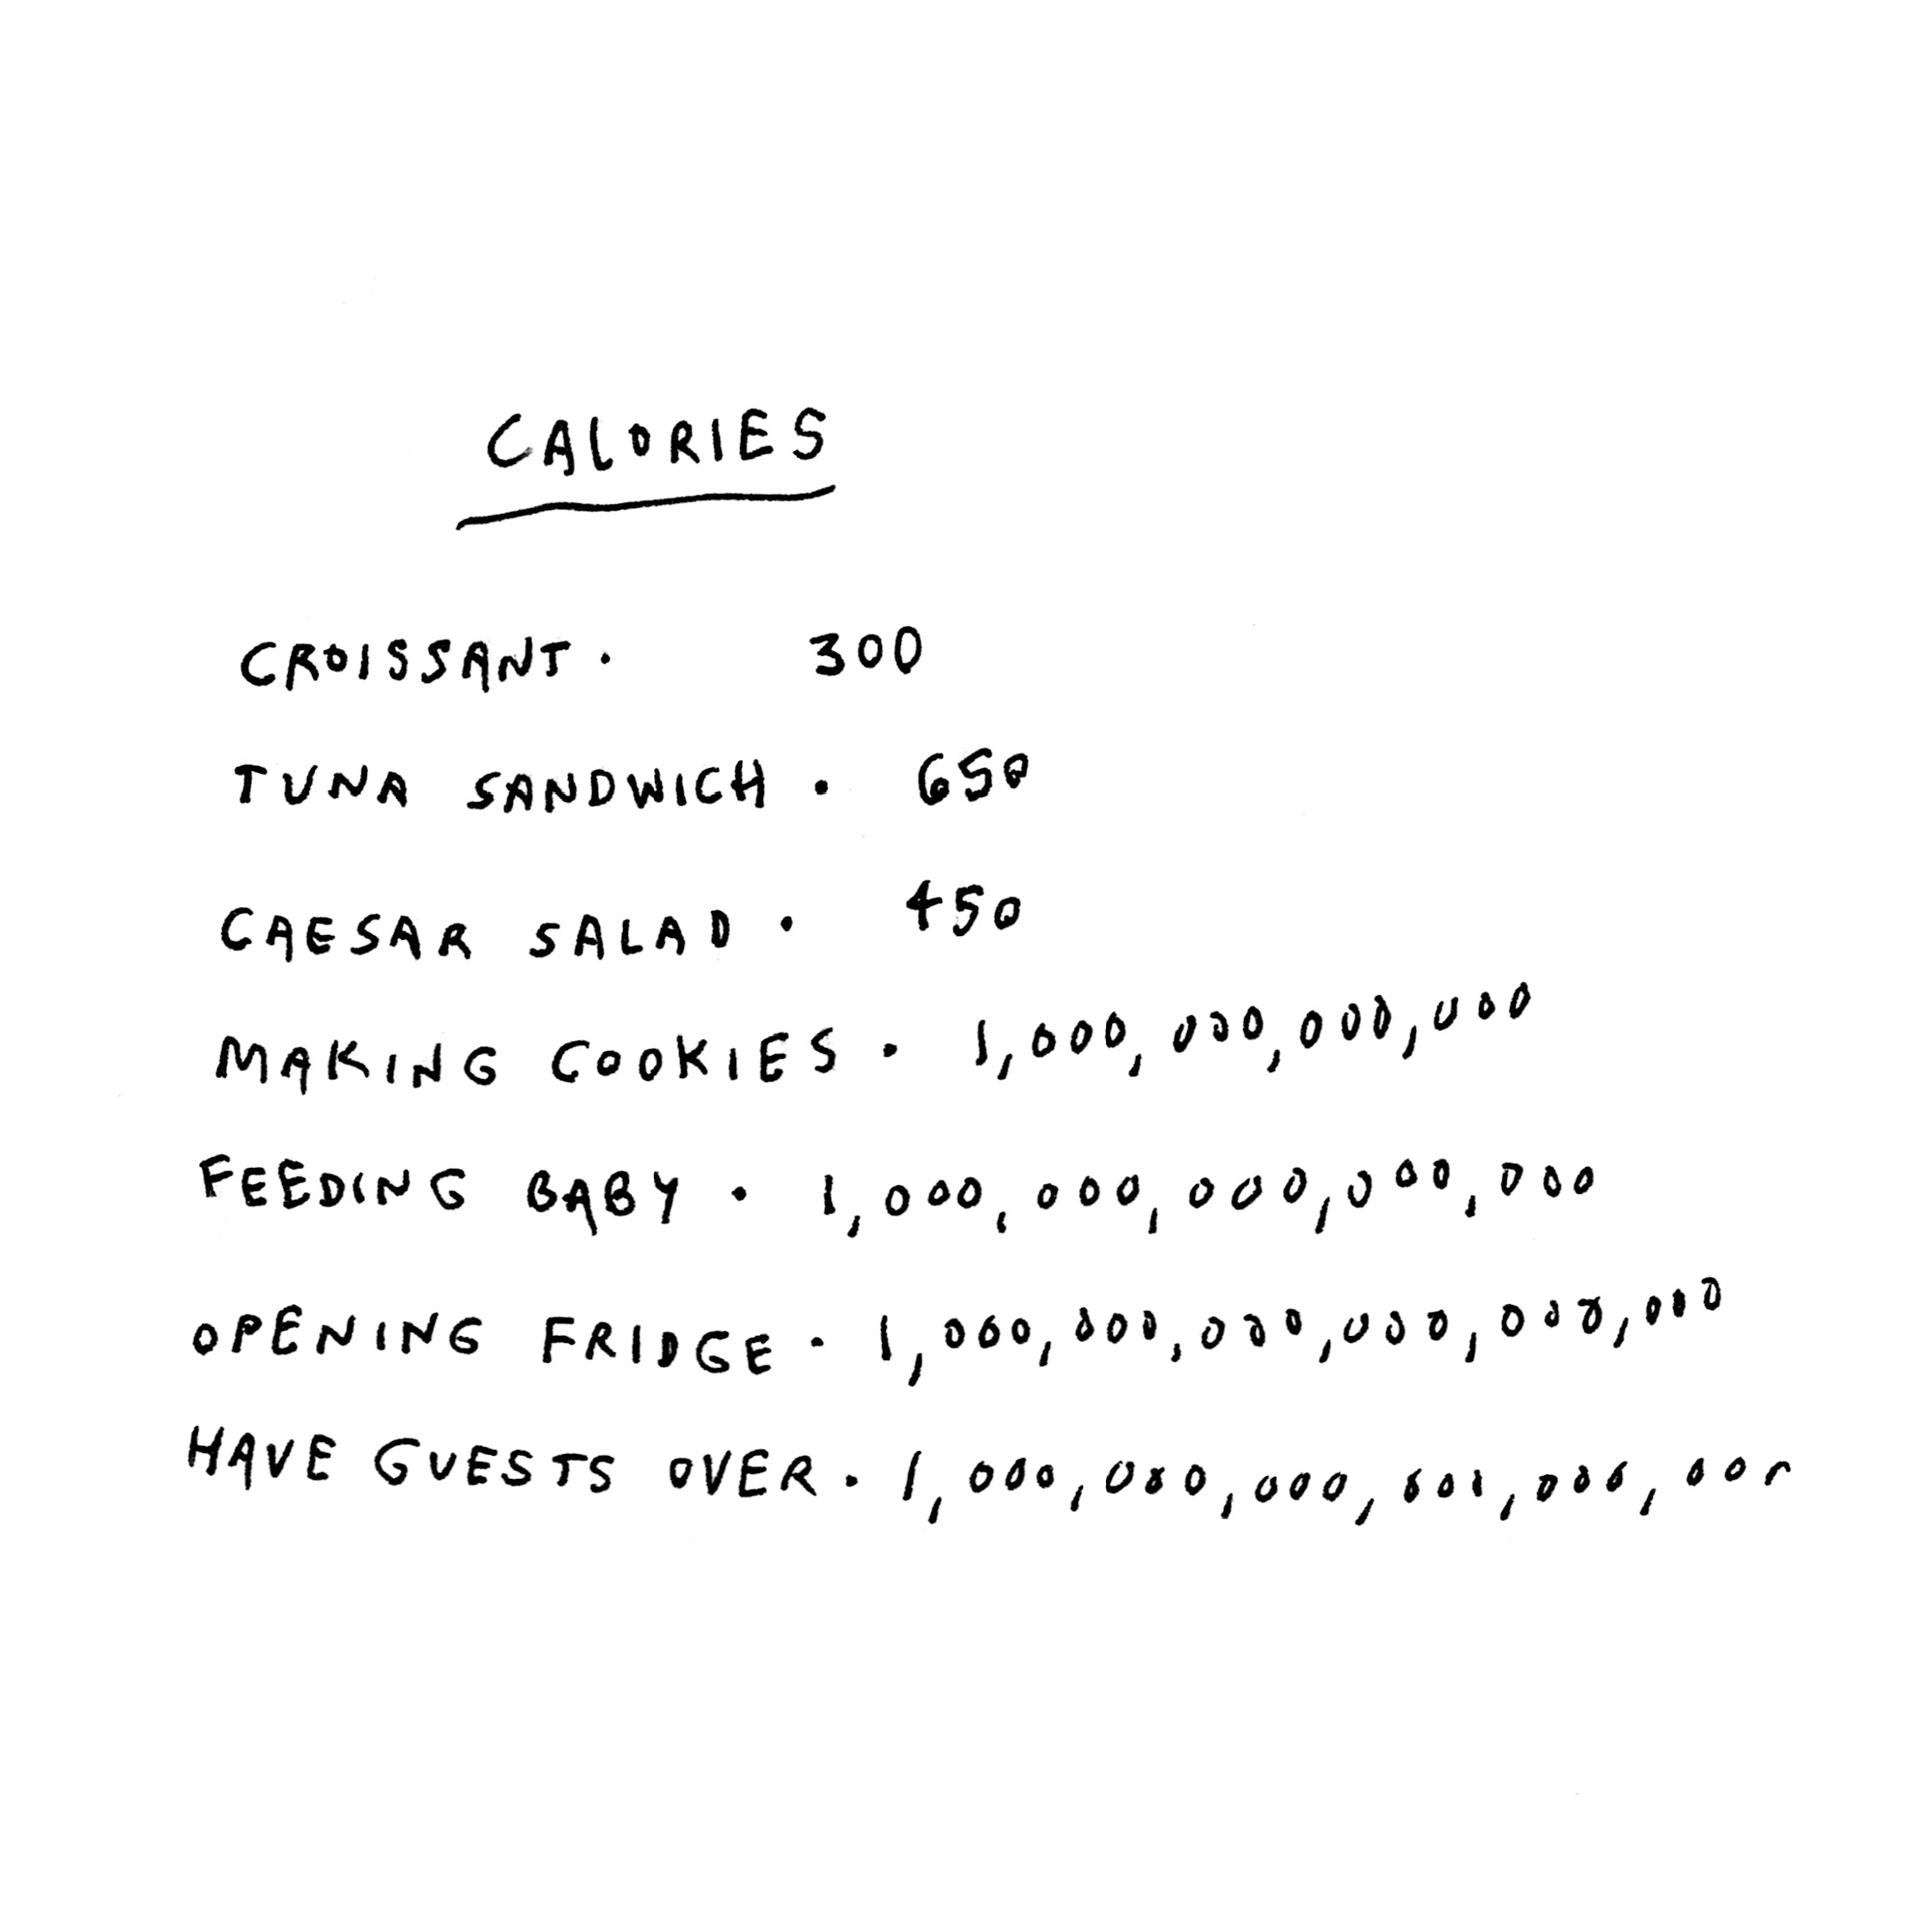 CALORIES
CROISSANT. 300
TUNA SANDWICH . 650
CAESAR SALAD . 450
MAKING COOKIES . 1,000,000,000,000
FEEDING BABY . 1,000,000,000,000,000
OPENING FRIDGE . 1,000,000,000,000,000,000
HAVE GUESTS OVER . 1,000,000,000,000,000,000